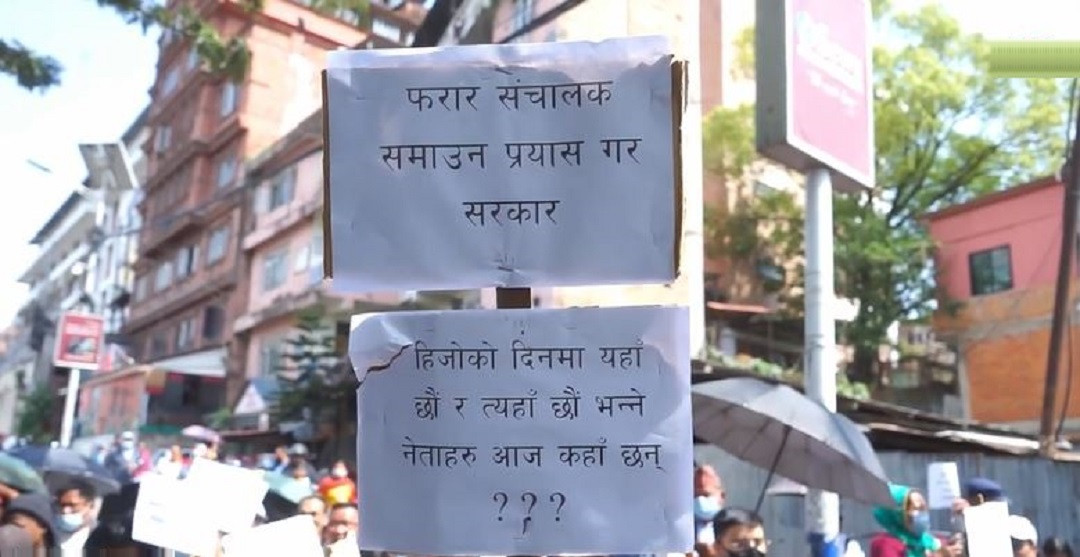 फरार संचालक
समाउन प्रयास गर
सरकार
हिजोको दिनमा यहाँ
छौं र त्यहाँ छौं भन्ने
नेताहरु आज कहाँ छन्
???